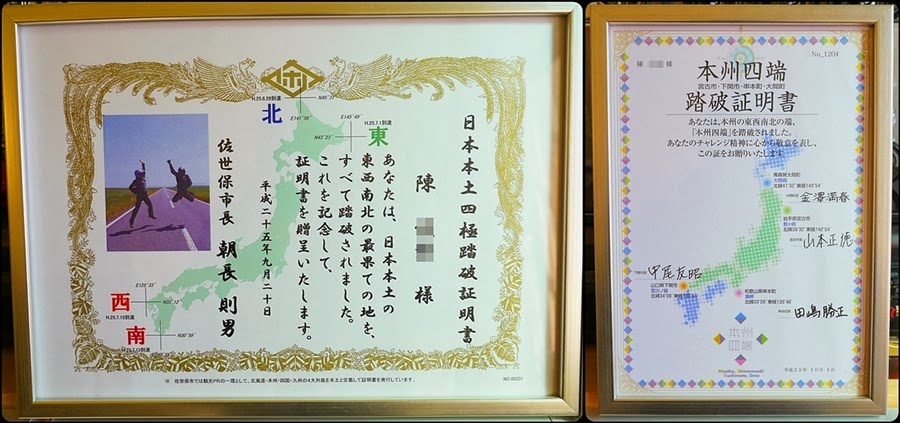 日本本土四極踏破証明書
陳
様
あなたは、日本本土の
東西南北の最果ての地を、
すべて踏破されました。
これを記念して、
証明書を贈呈いたします。
平成二十五年九月二十日
佐世保市長 朝長 則男
H.25.6.29到達
北
H.25.7.1到達
東
西
H.25.7.15到達
南
※ 佐世保市では観光PRの一環として、北海道・本州・四国・九州の4大利島を本土と定義して証明書を発行しています。
NO.00331
No_1204
陳
様
本州四端
宮古市・下関市・串本町・大間町
踏破証明書
あなたは、本州の東西南北の端、
「本州四端」を踏破されました。
あなたのチャレンジ精神に心から敬意を表し、
この証をお贈りいたします
青森県大間町
大間崎
北緯41°32' 東経140°54'
大間町長
金澤満春
岩手県宮古市
北緯39°32' 東経142°04'
宮古市長
山本正徳
下関市長
中尾友昭
山口県下関市
北緯34°06'
和歌山県串本町
潮岬
北緯33°26' 東経135°46'
串本町長
田嶋勝正
本州
四端
平成25年10月1日
Miyako, Shimonoseki
Kushimoto, Oma